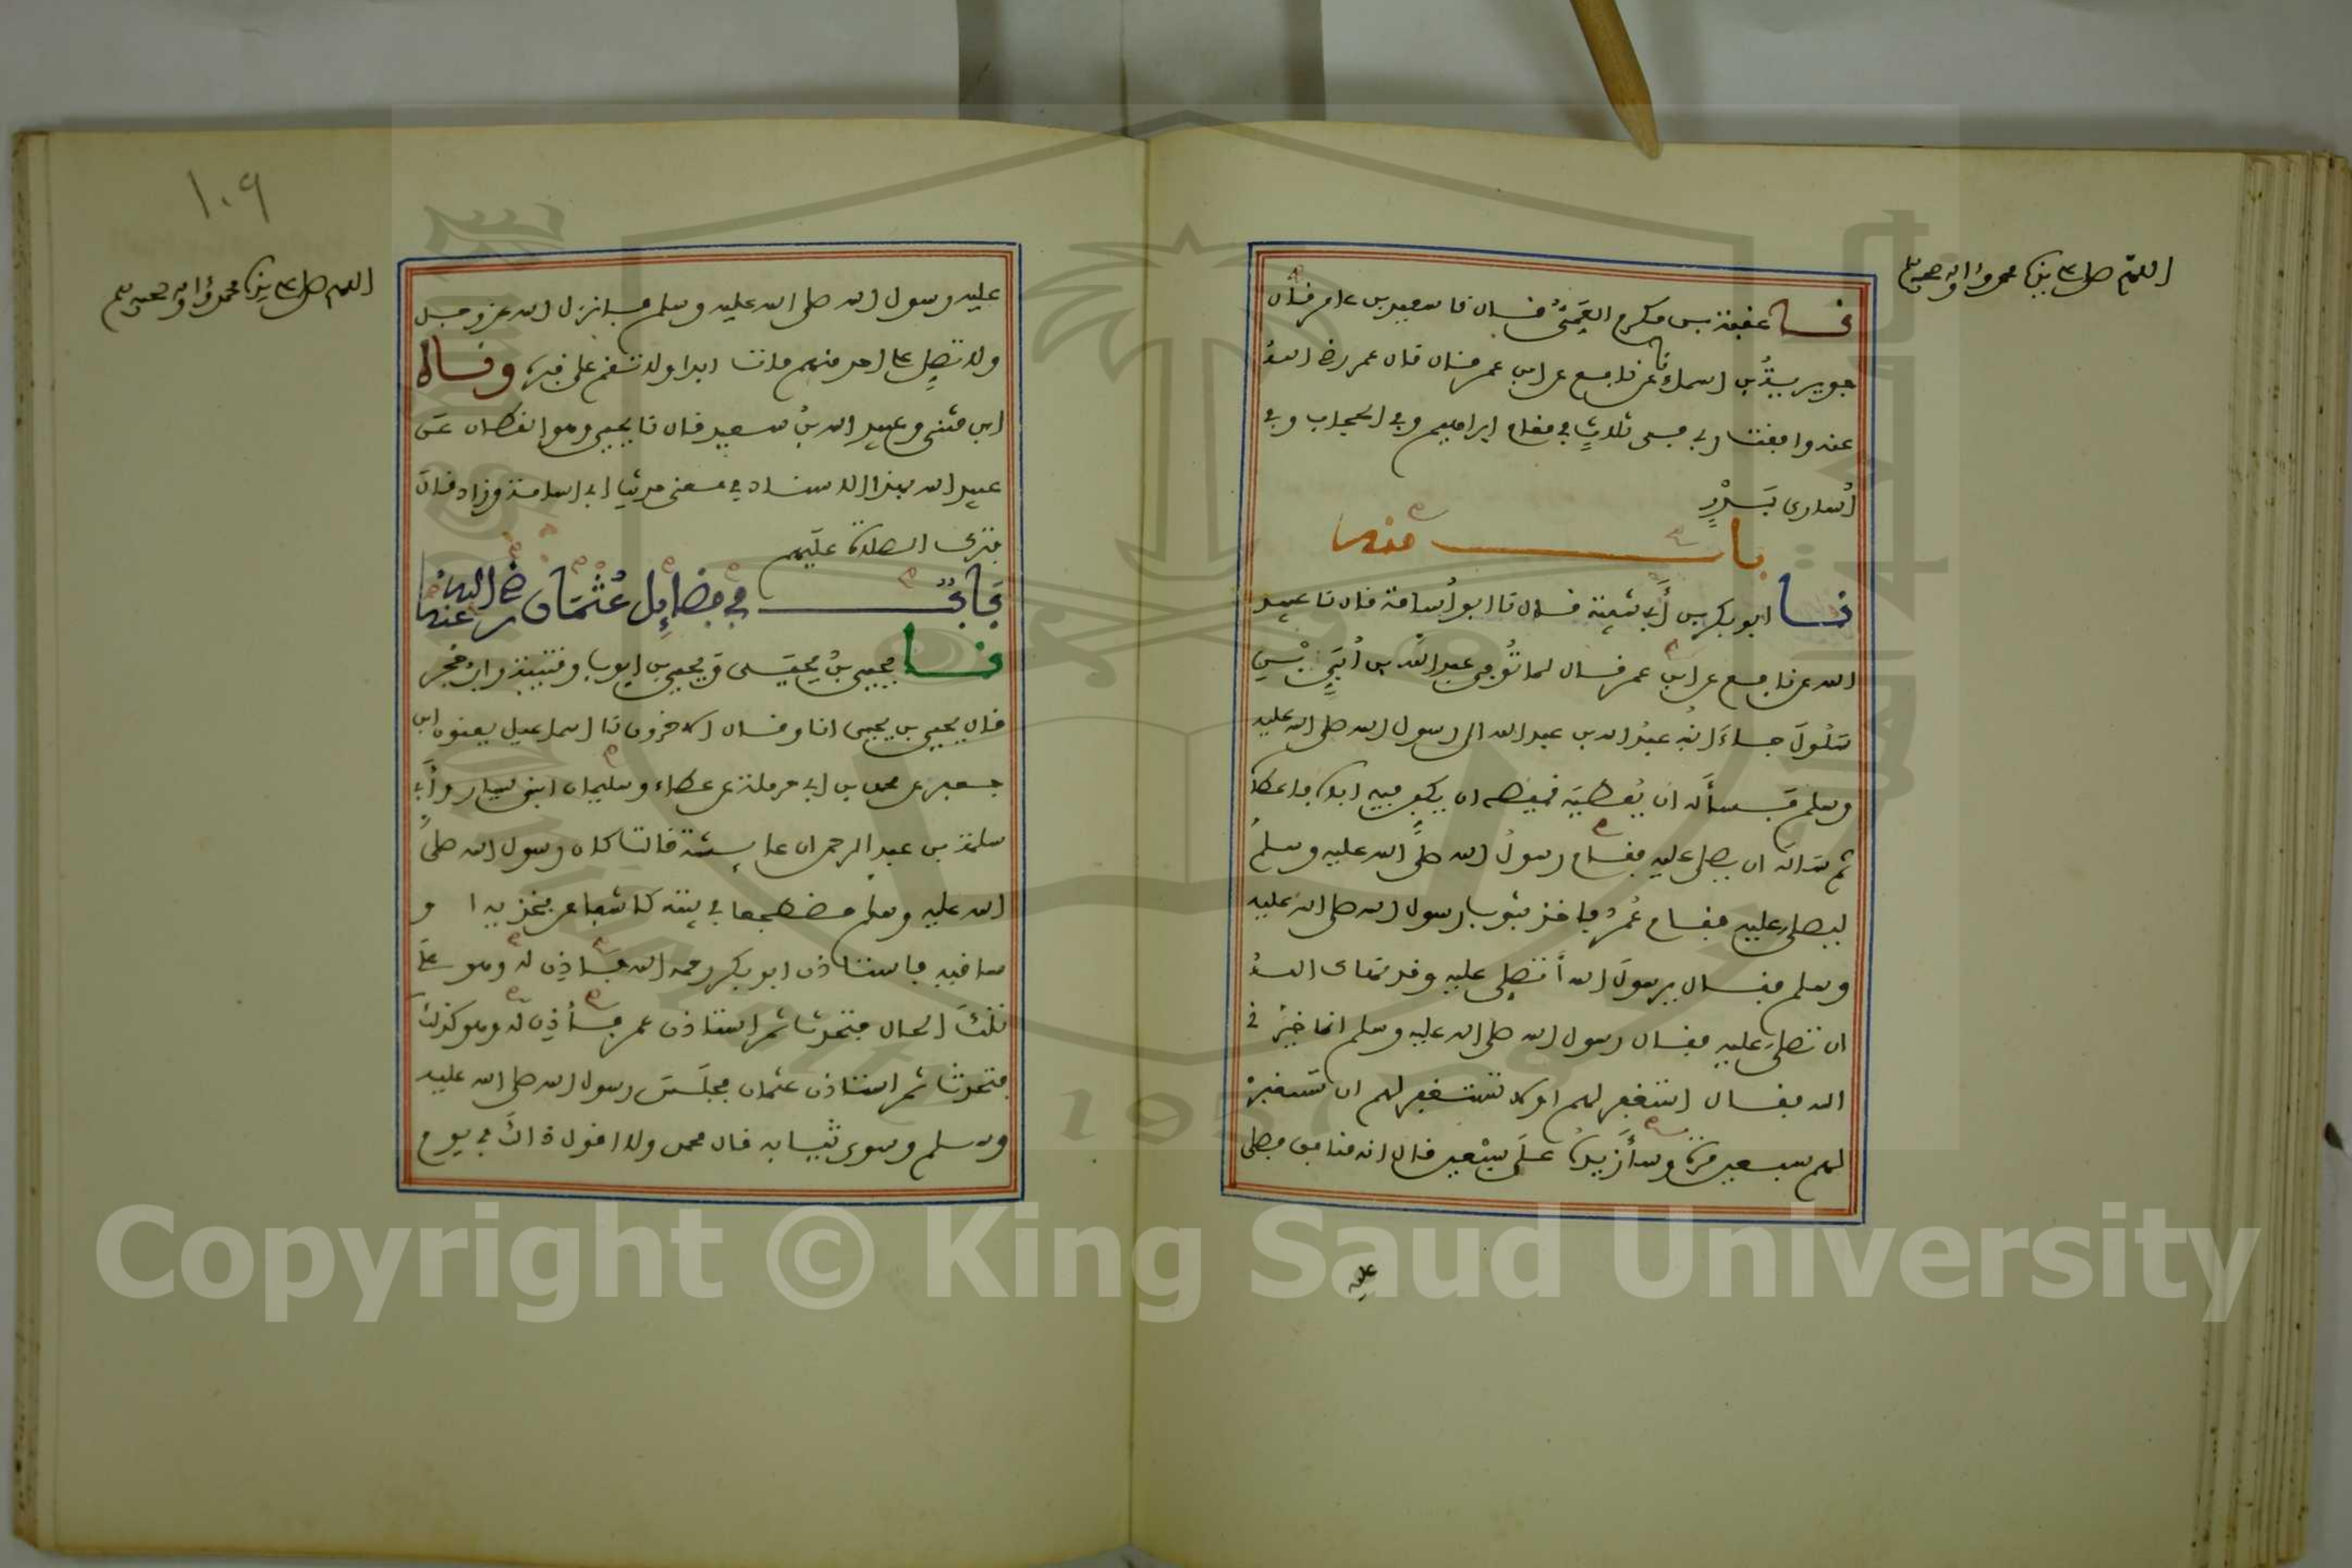 اللهم صل على نبينا محمد واله وصحبه وسلم
نا عقبة بن مكرم العمي قال نا سعيد بن عامر قال
جويرية بن اسماء نا عن نافع عن ابن عمر قال قال عمر رضي الله
عنه وافقت ربي في ثلاث في مقام ابراهيم وفي الحجاب وفي
أسارى بدر
باب منه
نا ابو بكر بن أبي شيبة قال نا ابو أسامة قال نا عبيد
الله عن نافع عن ابن عمر قال لما توفي عبد الله بن أبي بن
سلول جاء ابنه عبد الله بن عبد الله الى رسول الله صلى الله عليه
وسلم فسأله ان يعطيه قميصه ان يكفن فيه اباه فاعطاه
ثم سأله ان يصلي عليه فقام رسول الله صلى الله عليه وسلم
ليصلي عليه فقام عمر فاخذ بثوب رسول الله صلى الله عليه
وسلم فقال يرسول الله أتصلي عليه وقد نهاك الله
ان تصلي عليه فقال رسول الله صلى الله عليه وسلم انما خيرني
الله فقال استغفر لهم او لا تستغفر لهم ان تستغفر
لهم سبعين مرة وسأزيده على سبعين قال انه منافق فصلى
عليه
١٠٩
اللهم صل على نبينا محمد واله وصحبه وسلم
عليه رسول الله صلى الله عليه وسلم فانزل الله عز وجل
ولا تصل على احد منهم مات ابدا ولا تقم على قبره وناه
ابن مثنى وعبيد الله بن سعيد قال نا يحيى وهو القطان عن
عبيد الله بهذا الاسناد في معنى حديث ابي اسامة وزاد قال
فترك الصلاة عليهم
باب في فضايل عثمان رضي الله عنه
نا يحيى بن يحيى ويحيى بن ايوب وقتيبة وابن حجر
قال يحيى بن يحيى انا وقال الاخرون نا اسماعيل يعنون ابن
جعفر عن محمد بن ابي حرملة عن عطاء وسليمان ابني يسار وأبي
سلمة بن عبد الرحمن ان عايشة قالت كان رسول الله صلى
الله عليه وسلم مضطجعا في بيته كاشفا عن فخذيه ا و
ساقيه فاستاذن ابو بكر رحمه الله فاذن له وهو على
تلك الحال فتحدث ثم استاذن عمر فأذن له وهو كذلك
فتحدث ثم استاذن عثمان فجلس رسول الله صلى الله عليه
وسلم وسوى ثيابه قال محمد ولا اقول ذالك في يوم
Copyright © King Saud University
1957